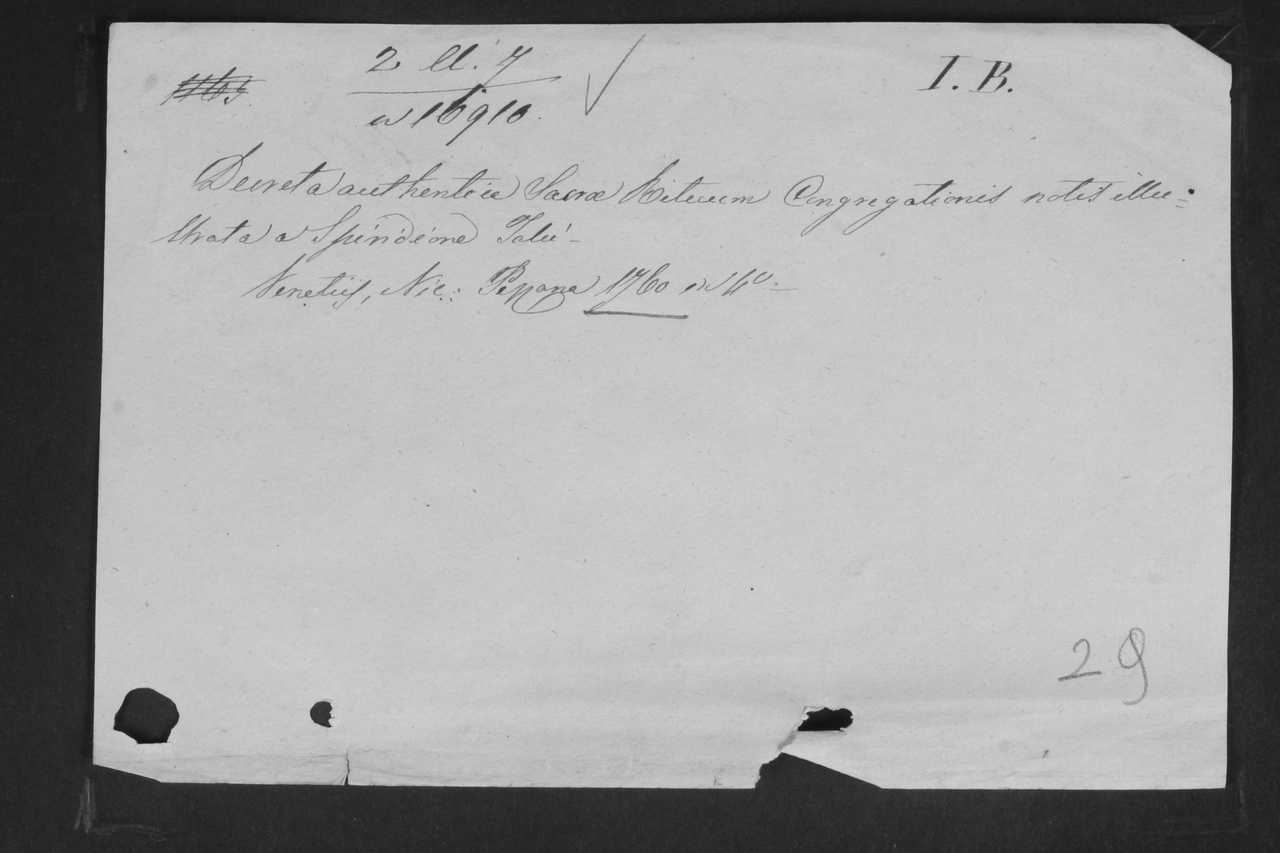 1163
2 ll. 7
I. B.
w 16910.
Decreta authentica Sacræ Rituum Congregationis notis illu=
strata a Spiridione Talù -
Venetiis, Nic: Pezzana 1760 in 4º. -
29